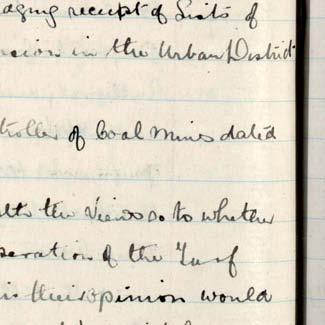 receipt of Lists of
in the Urban District
troller of Coal Mines dated
the views as to whether
peration of the Turf
their opinion would